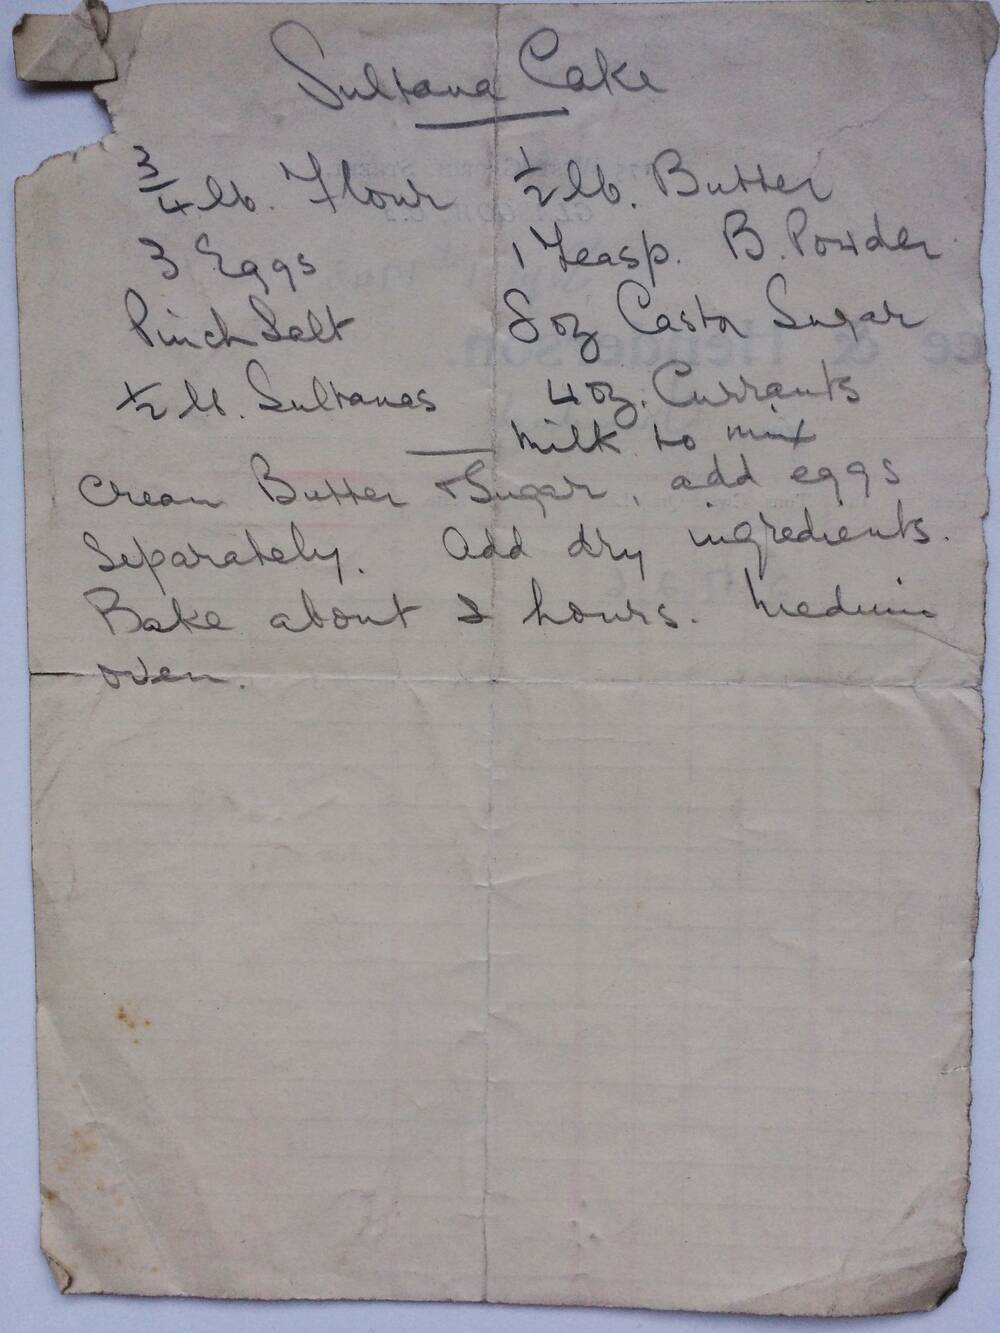 Sultana Cake
3/4 lb. Flour 1/2 lb. Butter
3 Eggs 1 Teasp. B. Powder
Pinch Salt 8 oz Castor Sugar
1/2 lb. Sultanas 4 oz. Currants
Milk to mix
Cream Butter + Sugar, add eggs
Separately. Add dry ingredients.
Bake about 2 hours. Medium
oven.